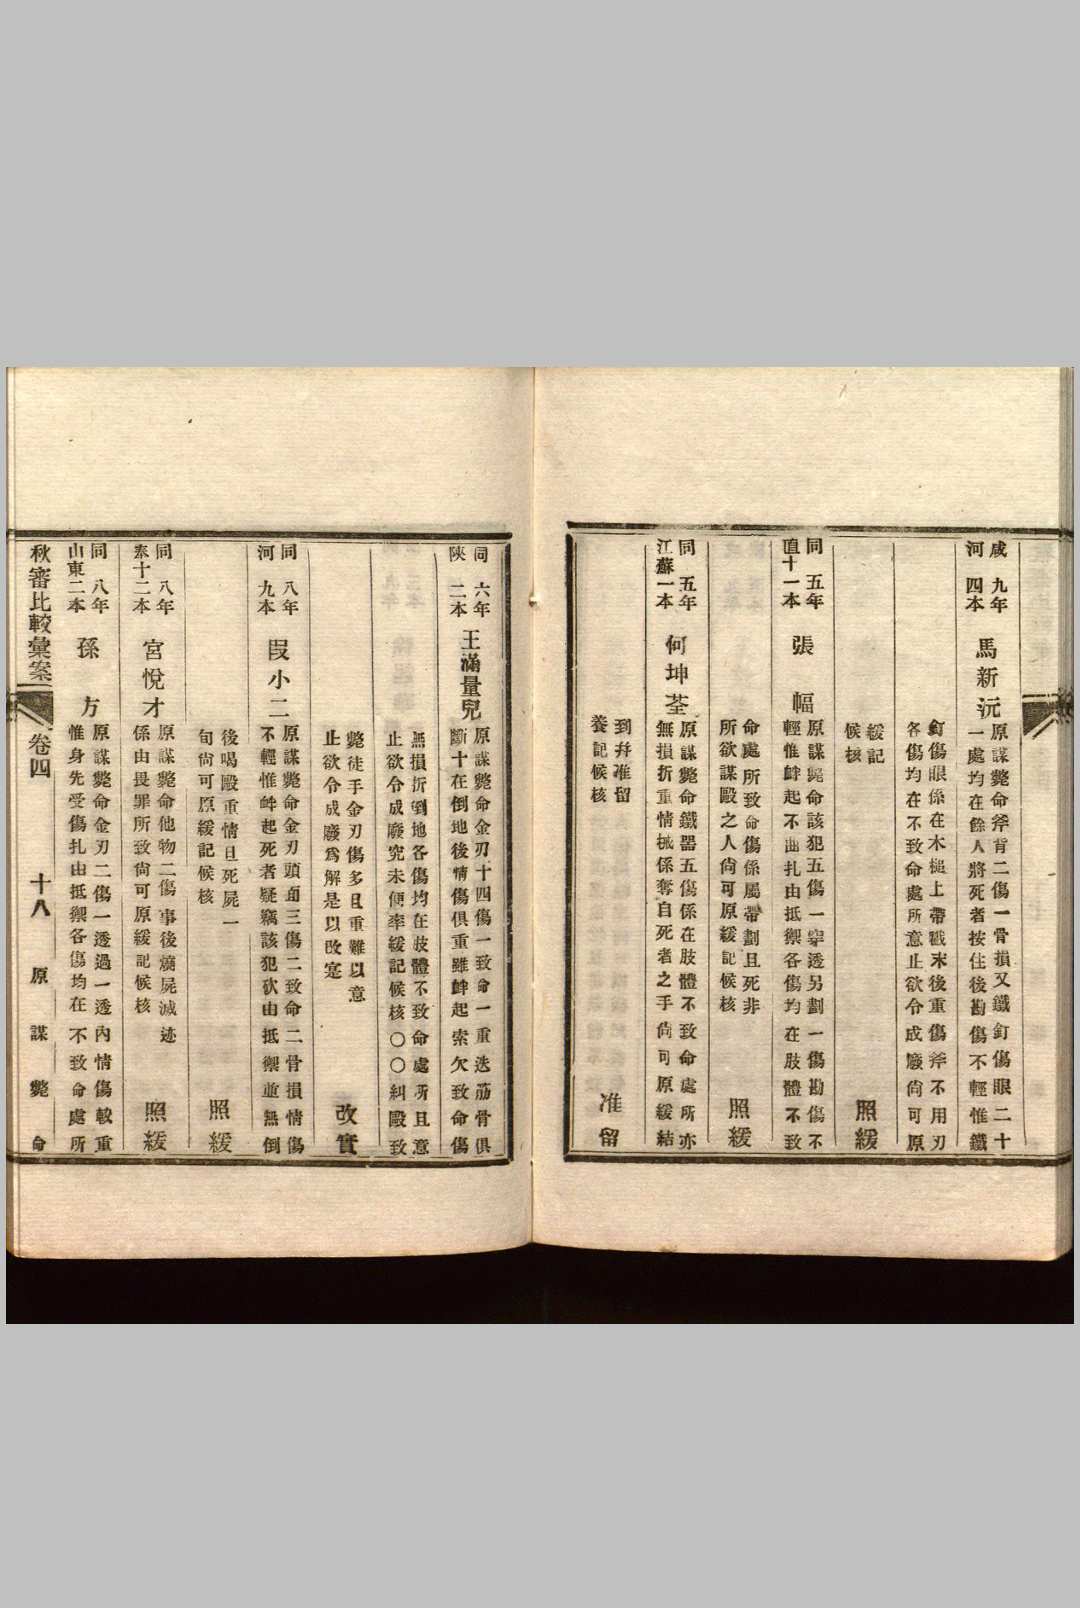 咸 九年
河 四本
馬新沅
原謀斃命斧背二傷一骨損又鐵釘傷眼二十
一處均在餘人將死者按住後勘傷不輕惟鐵
釘傷眼係在木槌上帶戳末後重傷斧不用刃
各傷均在不致命處所意止欲令成廢尙可原
緩記
候核
照緩
同 五年
直十一本
張 幅
原謀斃命該犯五傷一穿透另劃一傷勘傷不
輕惟衅起不曲扎由抵禦各傷均在肢體不致
命處所致命傷係屬帶劃且死非
所欲謀毆之人尙可原緩記候核
照緩
同 五年
江蘇一本
何坤荃
原謀斃命鐵器五傷係在肢體不致命處所亦
無損折重情械係奪自死者之手尙可原緩結
到并准留
養記候核
准留
同 六年
陝 二本
王滿量兒
原謀斃命金刃十四傷一致命一重迭筋骨俱
斷十在倒地後情傷俱重雖衅起索欠致命傷
無損折到地各傷均在肢體不致命處所且意
止欲令成廢究未便率緩記候核〇〇糾毆致
斃徒手金刃傷多且重難以意
止欲令成廢爲解是以改寔
改實
同 八年
河 九本
段小二
原謀斃命金刃頭面三傷二致命二骨損情傷
不輕惟衅起死者疑竊該犯砍由抵禦並無倒
後喝毆重情且死屍一
旬尙可原緩記候核
照緩
同 八年
奉十二本
宮悅才
原謀斃命他物二傷事後燒屍滅迹
係由畏罪所致尙可原緩記候核
照緩
同 八年
山東二本
孫 方
原謀斃命金刃二傷一透過一透內情傷較重
惟身先受傷扎由抵禦各傷均在不致命處所
秋審比較彙案 卷四 十八 原謀斃命